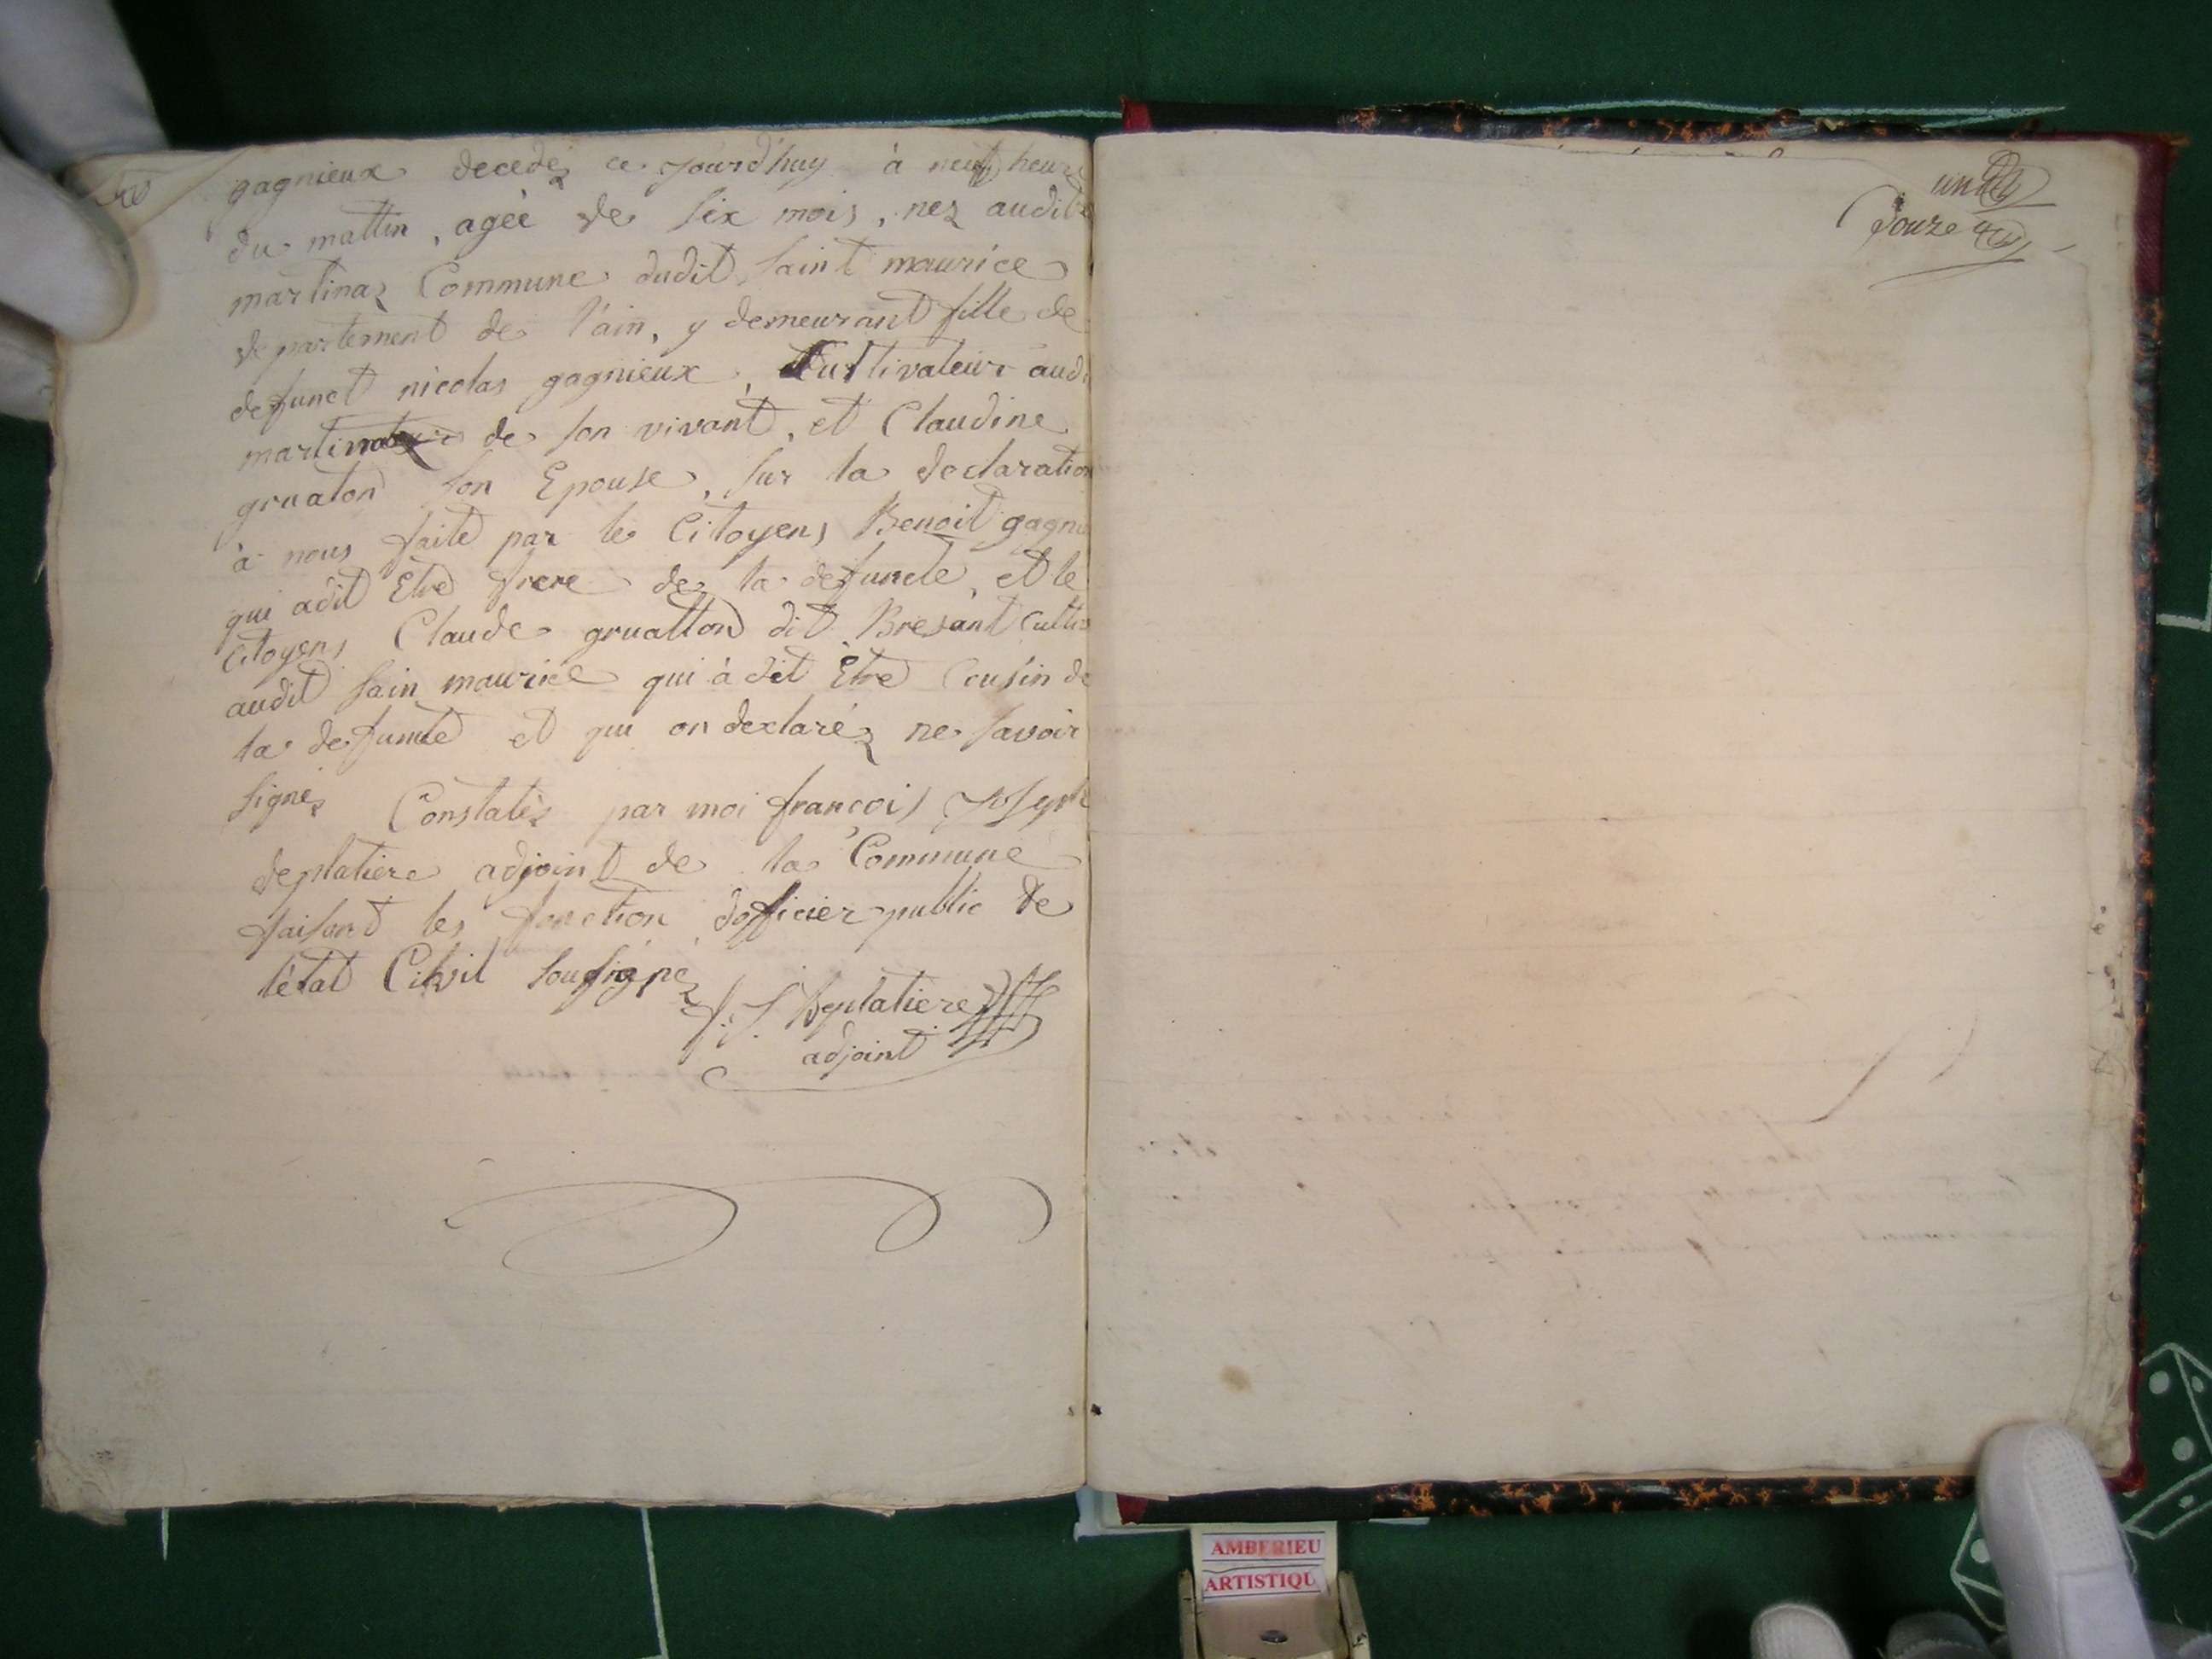 gagnieux decedéz ce jourd'huy à neuf heure
du mattin, ageé de six mois, nez audit
martinaz Commune dudit saint maurice
departement de l'ain, y demeurant fille de
defunct nicolas gagnieux, Cultivateur aud
martinaz de son vivant, et Claudine
gruaton son Epouse, sur la declaration
à nous faite par le Citoyens Benoit gagni
qui adit Etre frere de la defuncte, et le
Citoyens Claude gruatton dit Bresant Cultiv
audit sain maurice qui à dit Etre Cousin de
la defuncte et qui on declaréz ne savoir
signez Constatéz par moi françois Joseph
deplatiere adjoint de la Commune
faisant les fonction d'officier public de
l'état Civil sousignéz
f. J. Deplatiere
adjoint
un
douze
AMBERIEU
ARTISTIQU